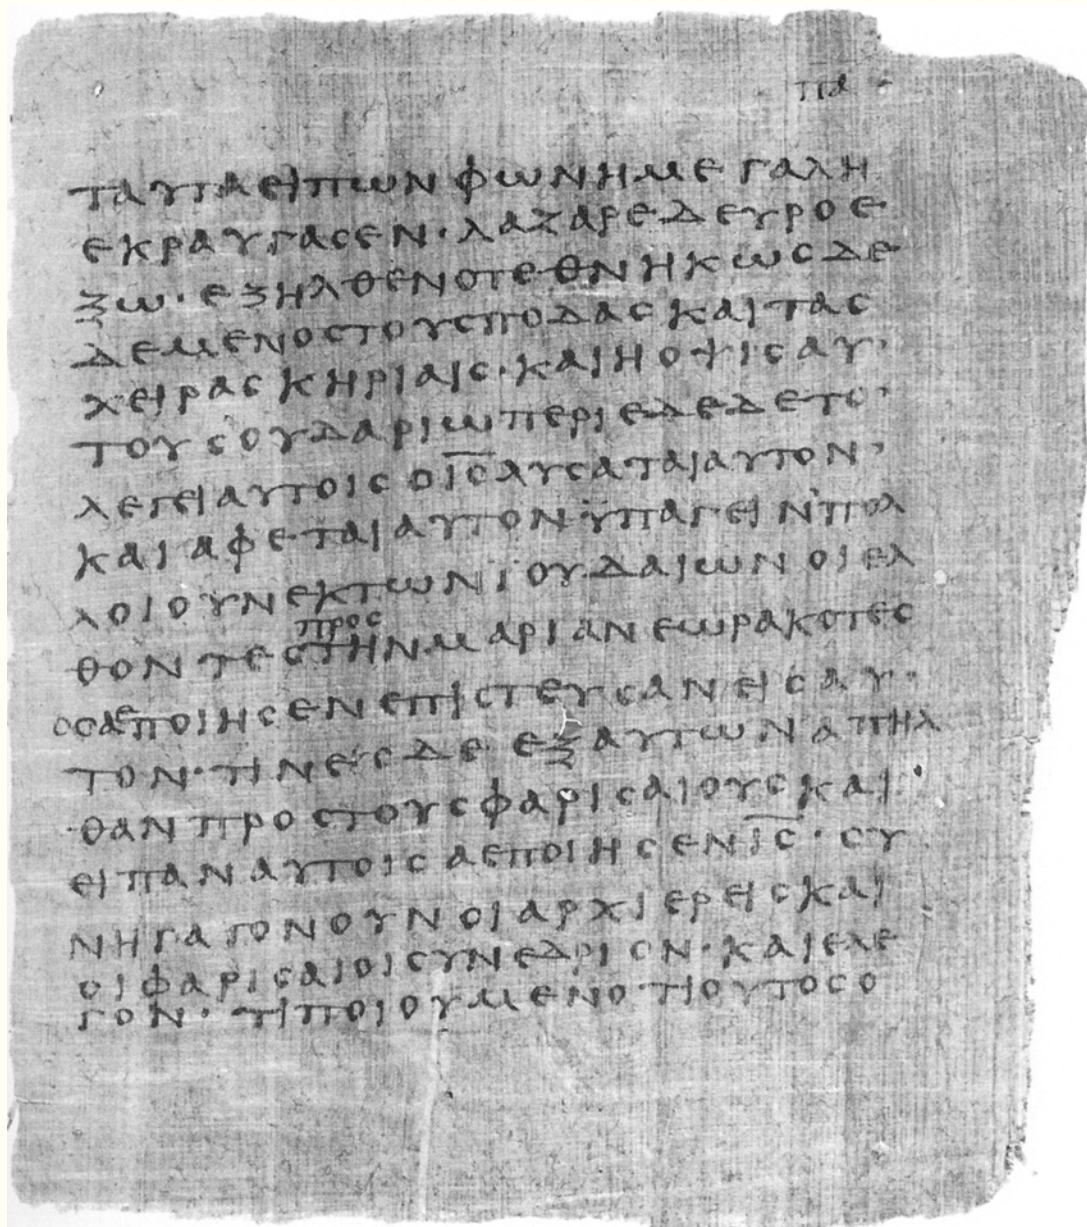 πα
ταυταειπωνφωνημεγαλη
εκραυγασεν·λαζαρεδευροε
ξω·εξηλθενοτεθνηκωςδε
δεμενοςτουςποδαςκαιτας
χειραςκηριαις·καιηοψιςαυ
τουσουδαριωπεριεδεδετο
λεγειαυτοιςοι̅ς̅λυσαταιαυτον
καιαφεταιαυτονϋπαγεινπολ
λοιουνεκτωνϊουδαιωνοιελ
προς
θοντεςτηνμαριανεωρακοτες
οσαεποιησενεπιστευσανειςαυ
τον·τινεςδεεξαυτωναπηλ
θανπροςτουςφαρισαιουςκαι
ειπαναυτοιςαεποιησενι̅ς̅·συ
νηγαγονουνοιαρχιερειςκαι
οιφαρισαιοισυνεδριον·καιελε
γον·τιποιουμενοτιουτοςο